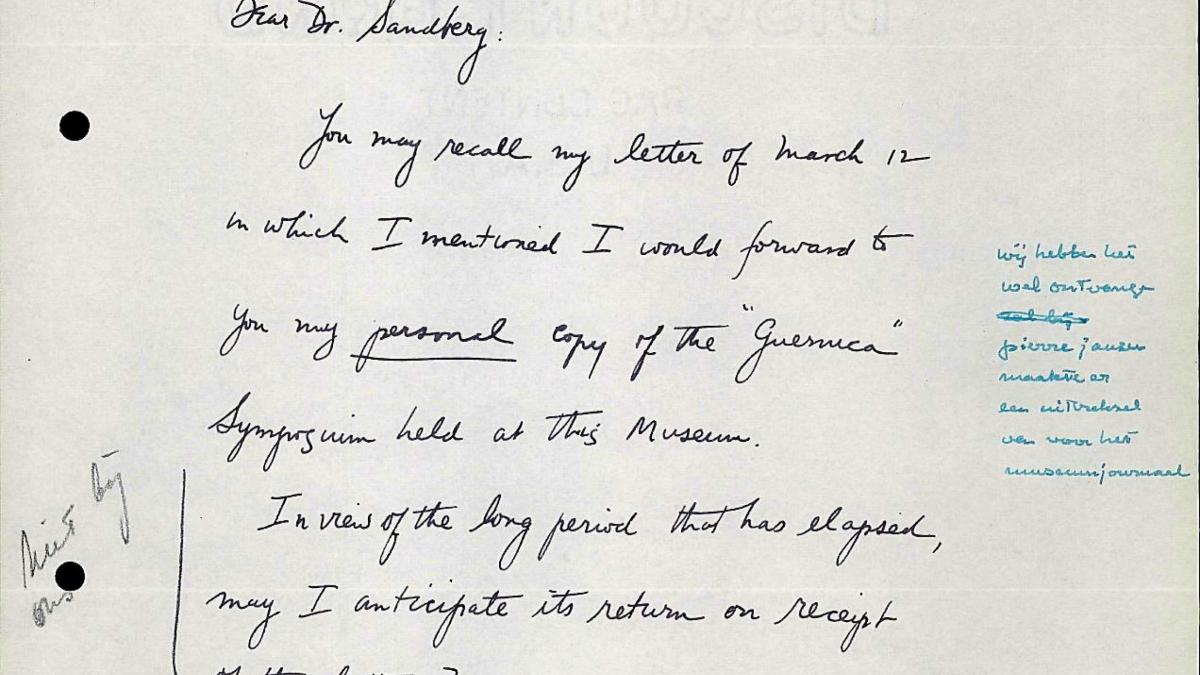 Dear Dr. Sandberg:
You may recall my letter of March 12
in which I mentioned I would forward to
you my personal copy of the "Guernica"
Symposium held at this Museum.
In view of the long period that has elapsed,
may I anticipate its return on receipt
wij hebben het
wel ontvangen
pierre janssen
maakte er
een uittreksel
van voor het
museumjournaal
Niet bij
ons